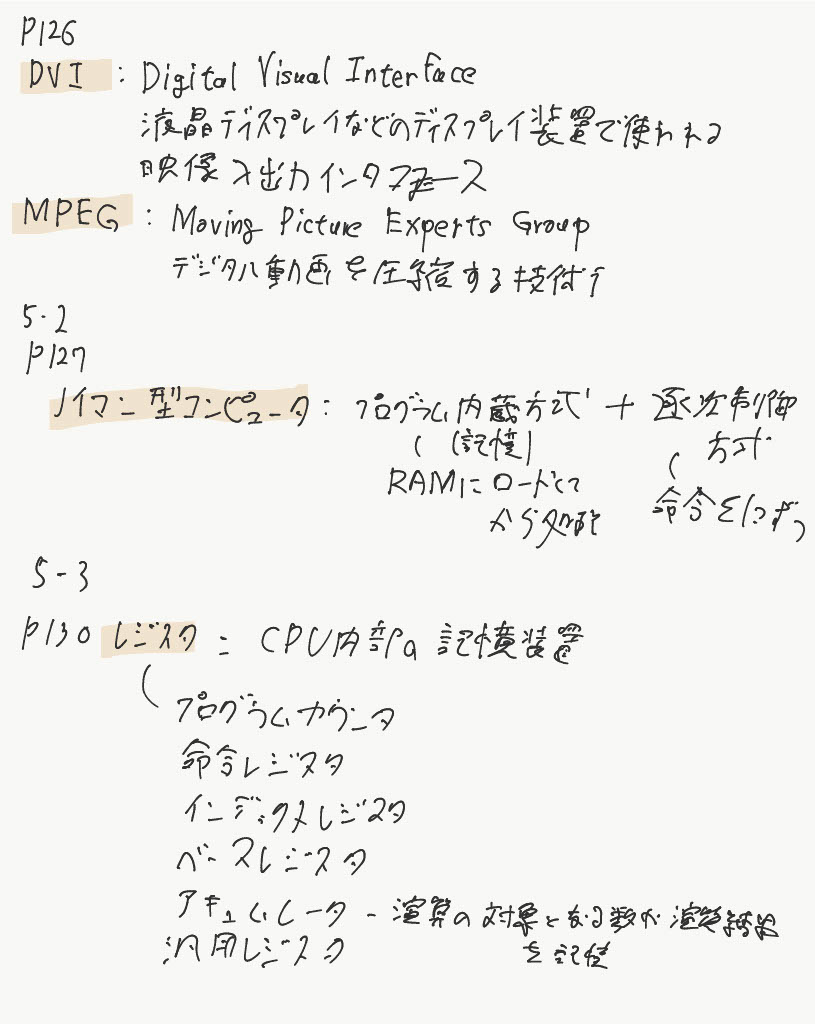 P126
DVI : Digital Visual Interface
液晶ディスプレイなどのディスプレイ装置で使われる
映像入出力インタフェース
MPEG : Moving Picture Experts Group
デジタル動画を圧縮する技術
5-2
P127
ノイマン型コンピュータ : プログラム内蔵方式 + 逐次制御
(記憶) 方式
RAMにロードして 命令を1つずつ
から処理
5-3
P130 レジスタ = CPU内部の記憶装置
プログラムカウンタ
命令レジスタ
インデックスレジスタ
ベースレジスタ
アキュムレータ - 演算の対象となる数や演算結果
を記憶
汎用レジスタ